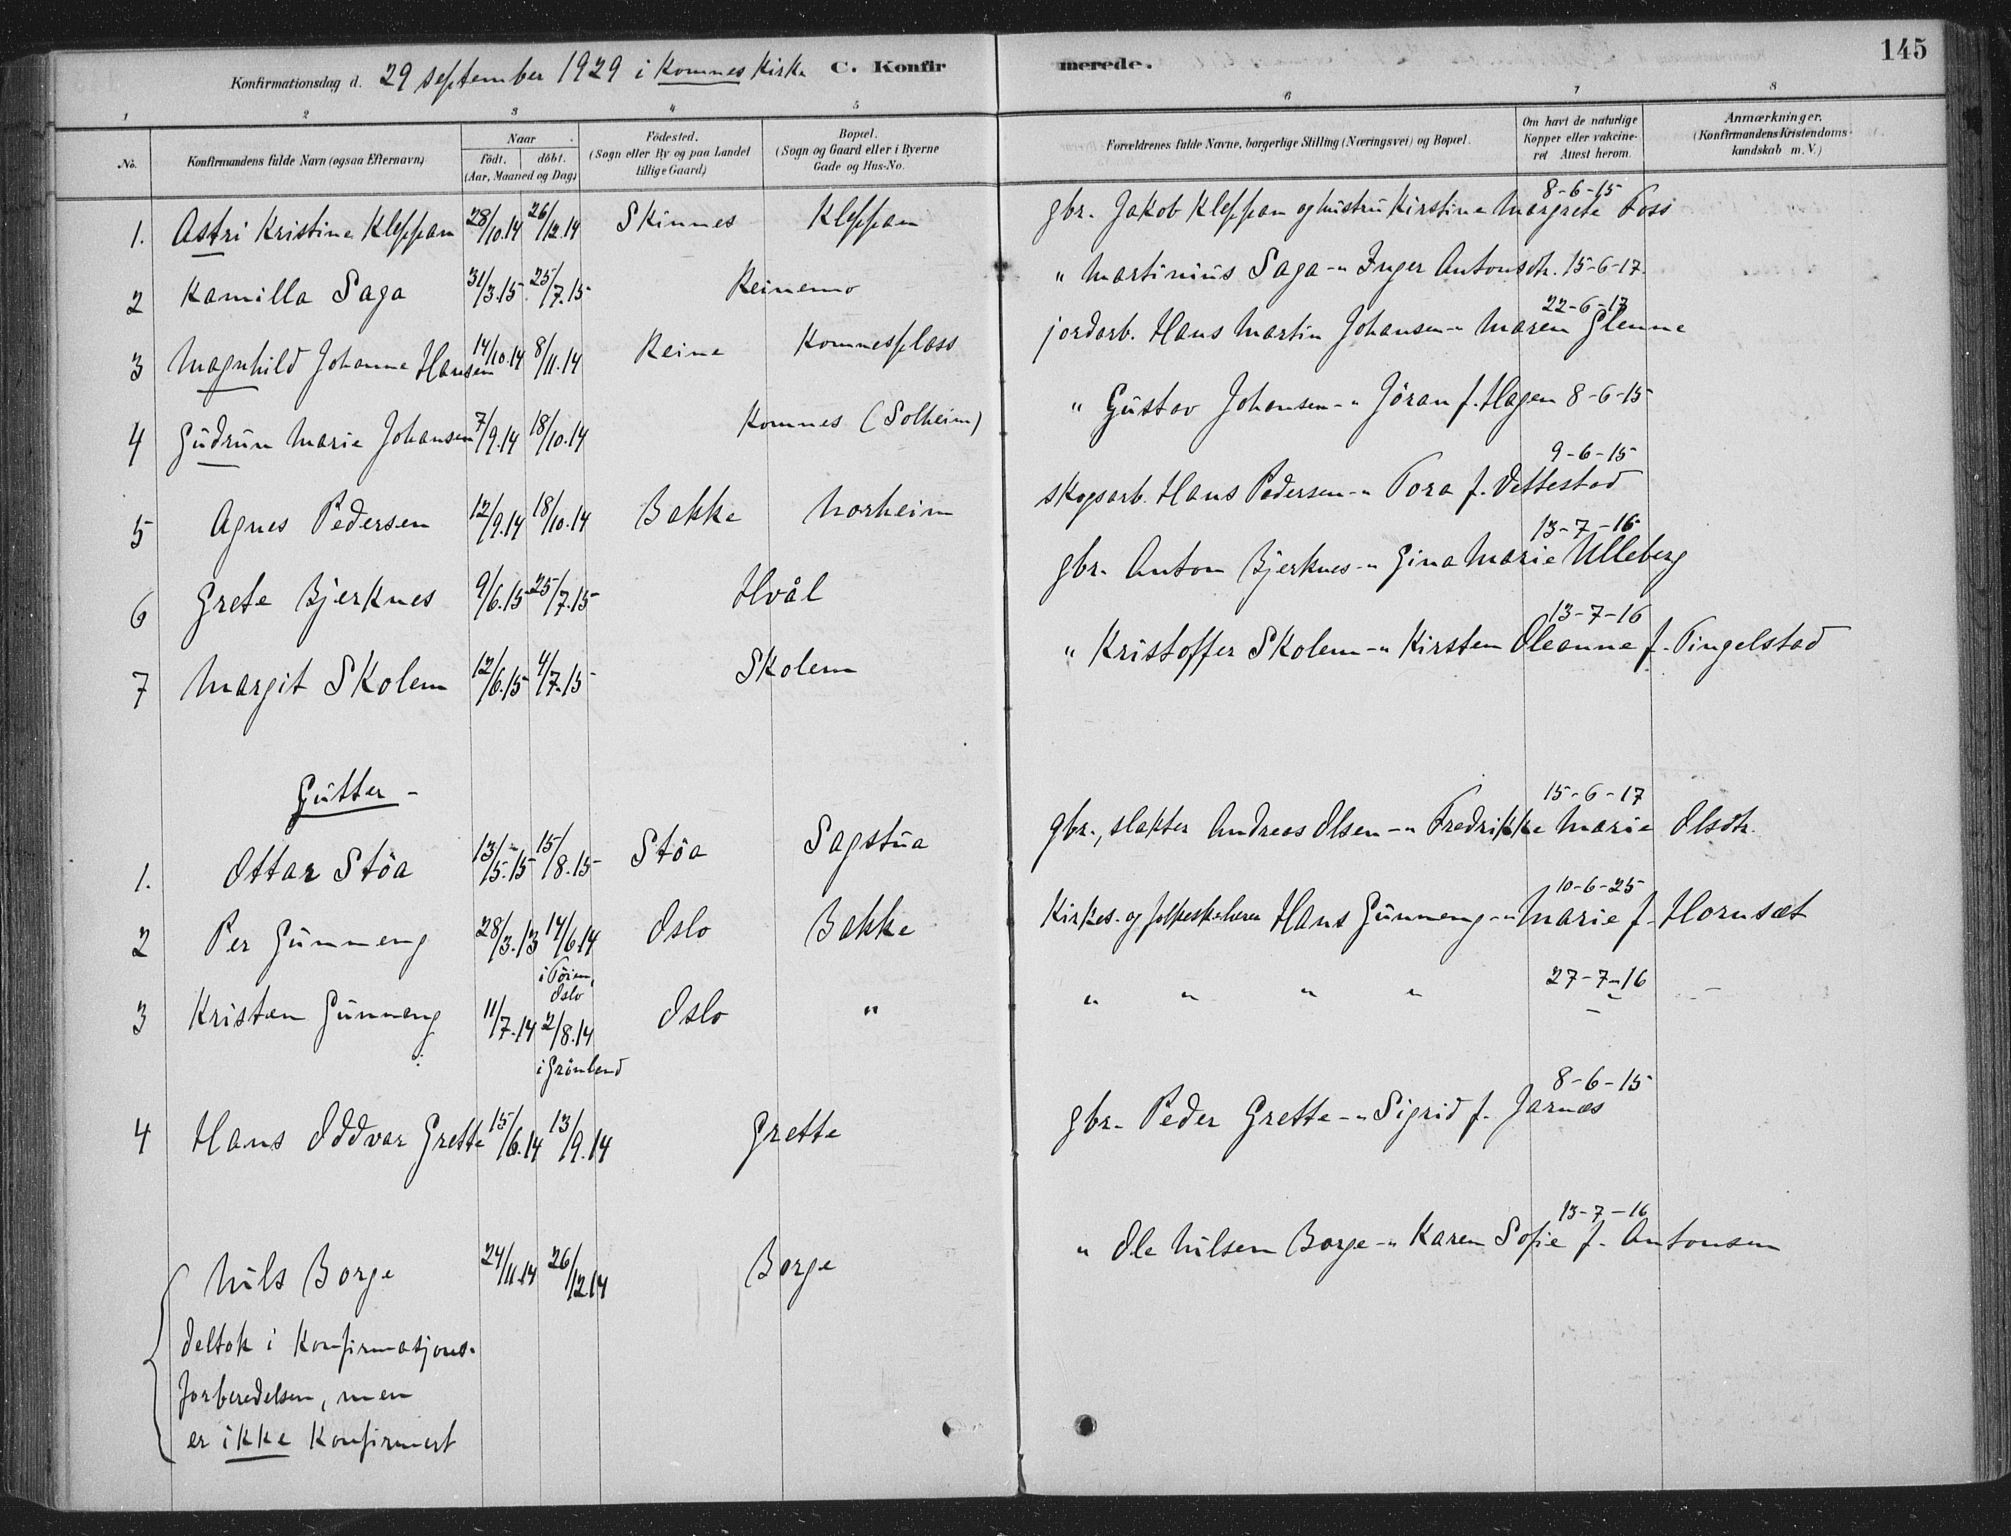 Konfirmationsdag d. 29 september 1929 i Komnes Kirke C. Konfir merede. 145
1 2 3 4 5 6 7 8
No. Konfirmandens fulde Navn (ogsaa Efternavn) Naar født. døbt. (Aar, Maaned og Dag) Fødested. (Sogn eller By og paa Landet tillige Gaard) Bopæl. (Sogn og Gaard eller i Byerne Gade og Hus-No. Forældrenes fulde Navne, borgerlige Stilling (Næringsvei) og Bopæl. Om havt de naturlige Kopper eller vakcineret Attest herom. Anmærkninger. (Konfirmandens Kristendomskundskab m. V.)
1. Astri Kristine Kleppan 28/10.14 26/12.14 Skinnes Kleppan gbr. Jakob Kleppan og hustru Kirstine Margrete Foss 8-6-15
2 Kamilla Saga 31/3.15 25/7.15 Reinemo " Martinius Saga -"- Inger Antonsdtr. 15-6-17.
3 Magnhild Johanne Hansen 14/10.14 8/11.14 Reine Komnesplass jordarb. Hans Martin Johansen -"- Maren Glenne 22-6-17
4 Gudrun Marie Johansen 7/9.14 18/10.14 Komnes (Solheim) " Gustav Johansen -"- Jöran f. Hagen 8-6-15
5 Agnes Pedersen 12/9.14 18/10.14 Bakke Norheim skogsarb. Hans Pedersen -"- Tora f. Vettestad 9-6-15
6 Grete Bjerknes 9/6.15 25/7.15 Hvål gbr. Anton Bjerknes -"- Gina Marie Ulleberg 13-7-16
7 Margit Skolem 12/6.15 4/7.15 Skolem " Kristoffer Skolem -"- Kirsten Oleanne f. Tingelstad 13-7-16
Gutter -
1. Ottar Stöa 13/5.15 15/8.15 Stöa Sagstua gbr., slakter Andreas Olsen -"- Fredrikke Marie Olsdtr. 15-6-17
2 Per Gunneng 28/3.13 14/6.14 i Töien, Oslo Oslo Bakke Kirkes. og folkeskolelærer Hans Gunneng -"- Marie f. Hornsæt 10-6-25
3 Kristen Gunneng 11/7.14 2/8.14 i Grönland Oslo " " " " " 27-7-16 "
4 Hans Oddvar Grette 15/6.14 13/9.14 Grette gbr. Peder Grette -"- Sigrid f. Jarnæs 8-6-15
Nils Borge 24/11.14 26/12.14 Borge " Ole Nilsen Borge -"- Karen Sofie f. Antonsen 13-7-16
deltok i Konfirmasjons-
forberedelsen, men
er ikke Konfirmert